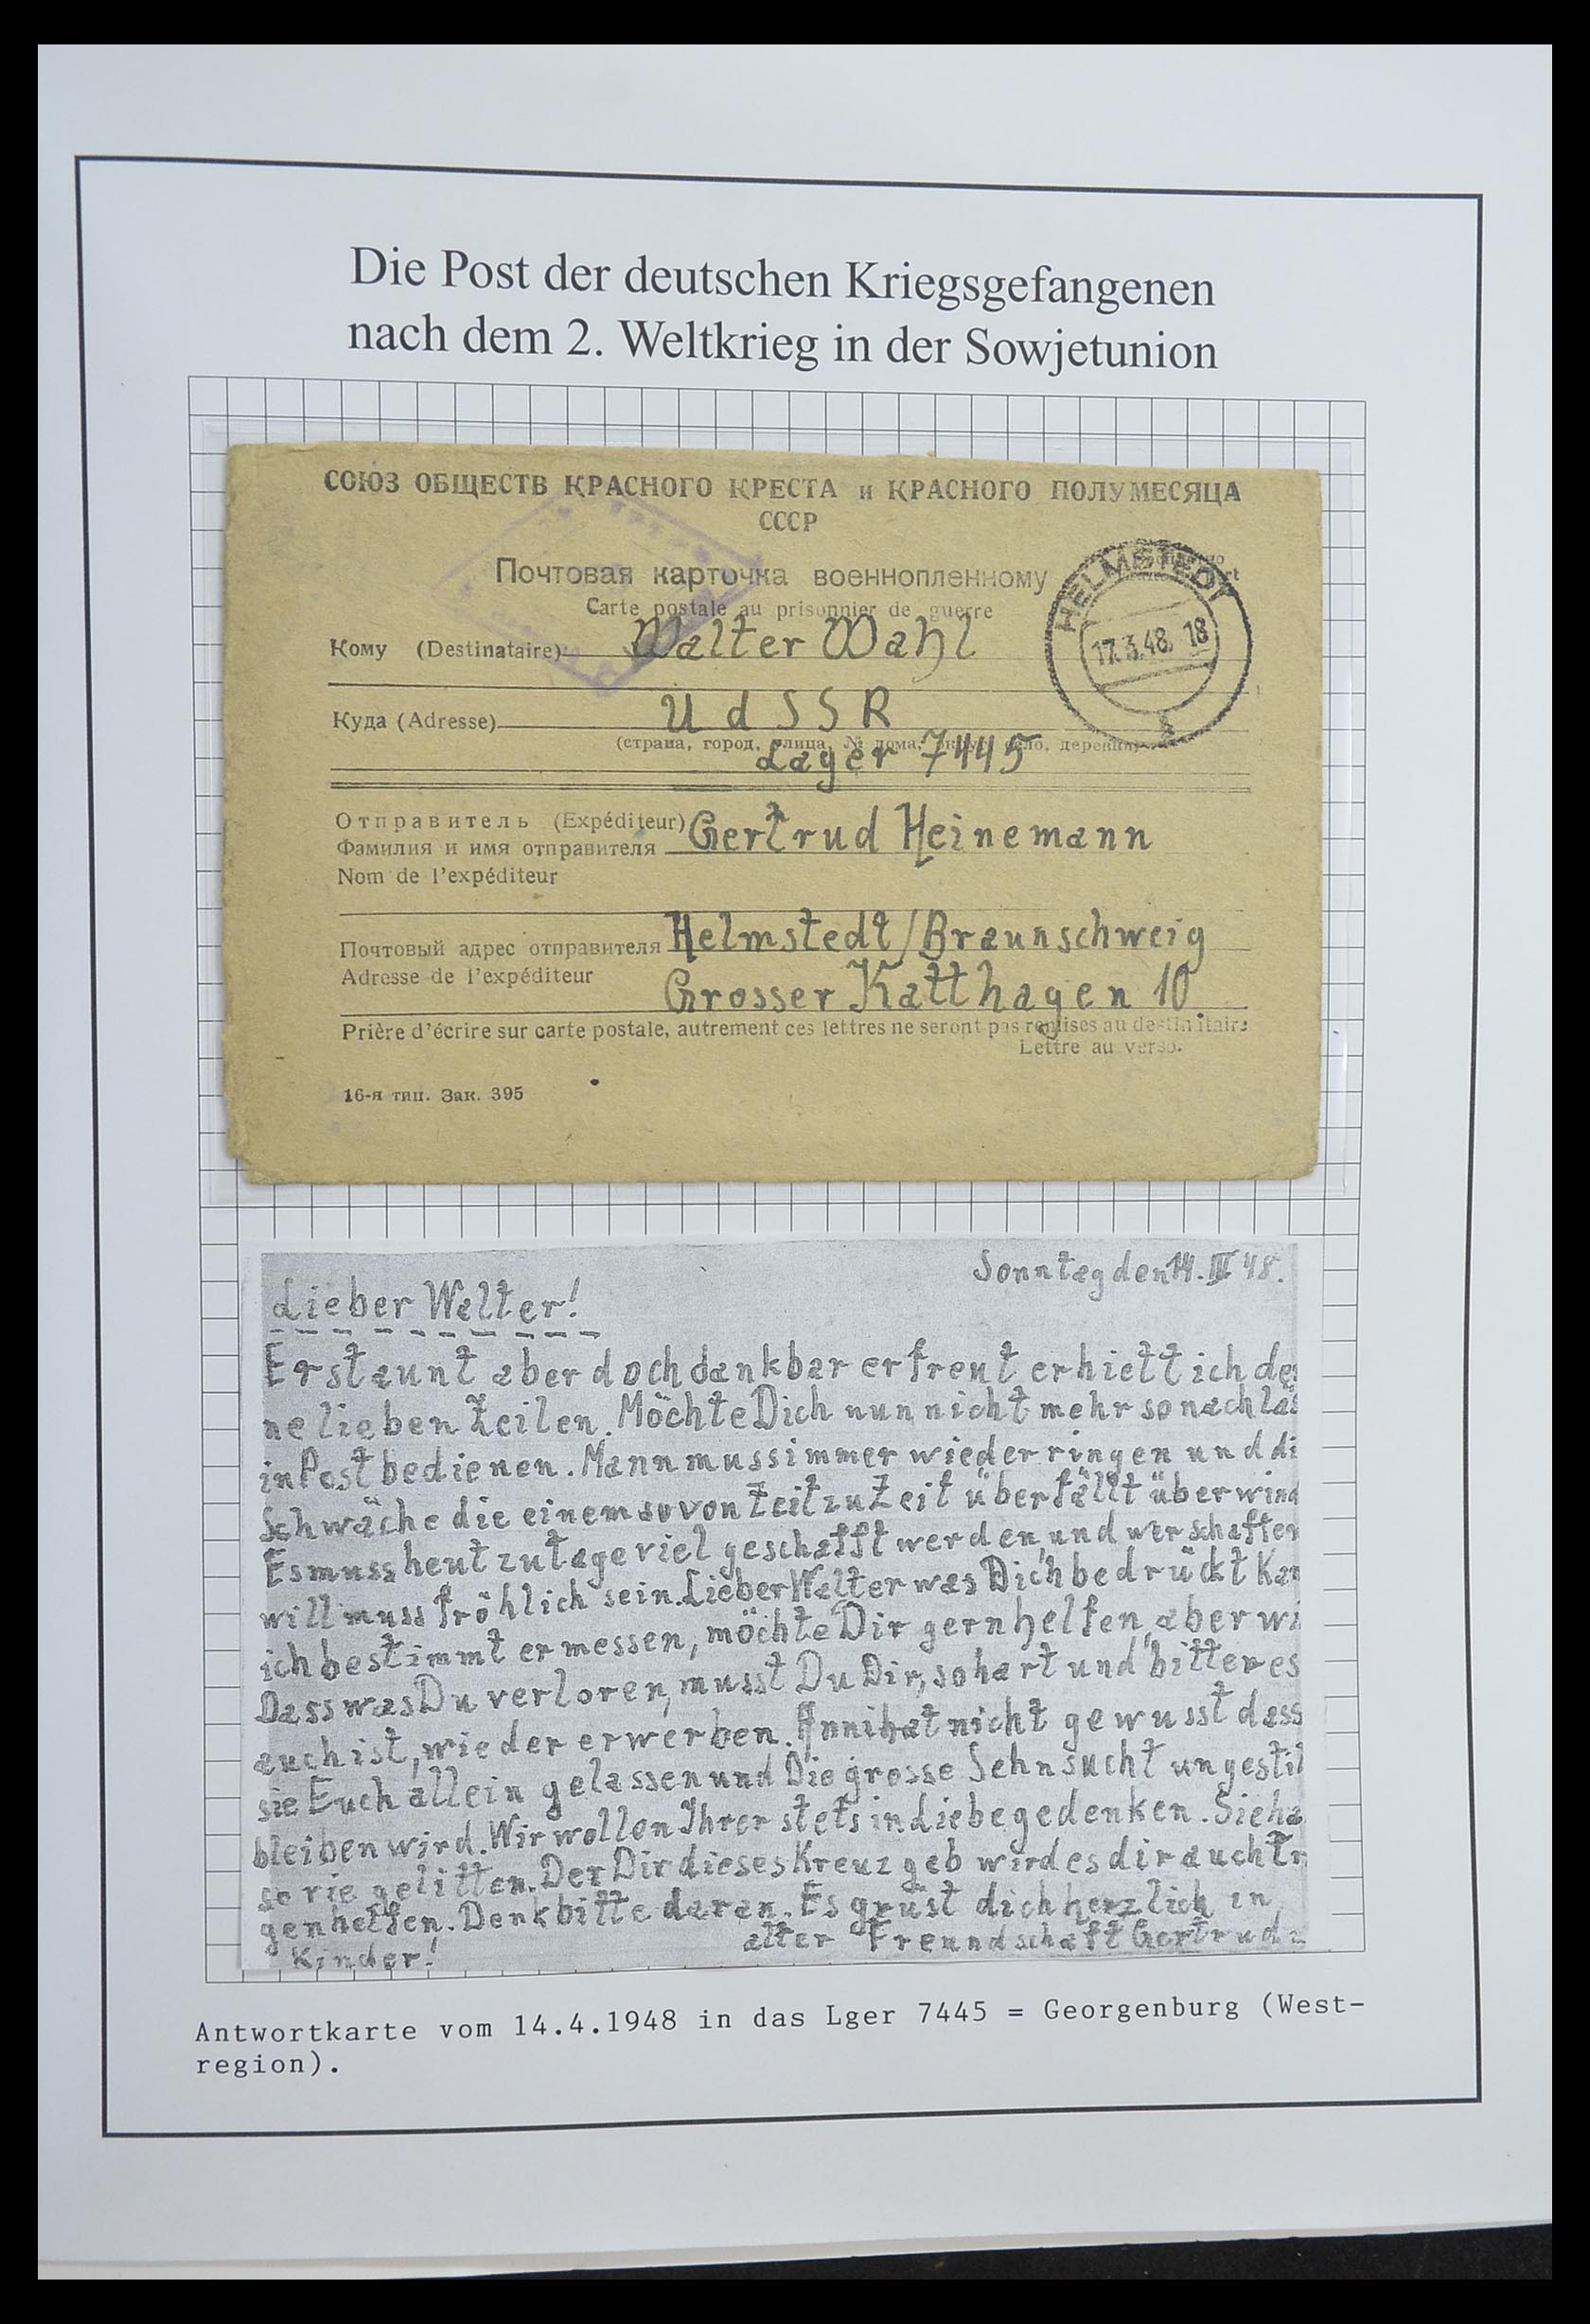 Die Post der deutschen Kriegsgefangenen
nach dem 2. Weltkrieg in der Sowjetunion
СОЮЗ ОБЩЕСТВ КРАСНОГО КРЕСТА и КРАСНОГО ПОЛУМЕСЯЦА
СССР
Почтовая карточка военнопленному
Carte postale au prisonnier de guerre
HELMSTEDT
17.3.48. 18
Кому (Destinataire) Walter Wahl
Куда (Adresse) UdSSR
(страна, город, улица, № дома, село, деревня)
Lager 7445
Отправитель (Expéditeur) Gertrud Heinemann
Фамилия и имя отправителя
Nom de l'expéditeur
Почтовый адрес отправителя Helmstedt/Braunschweig
Adresse de l'expéditeur Grosser Katthagen 10
Prière d'écrire sur carte postale, autrement ces lettres ne seront pas remises au destinitaire
Lettre au verso.
16-я тип. Зак. 395
Sonntag den 14. III 48.
Lieber Walter!
Erstaunt aber doch dankbar erfreut erhielt ich dei
ne lieben Zeilen. Möchte Dich nun nicht mehr so nachläs
in Post bedienen. Mann muss immer wieder ringen und di
Schwäche die einem so von Zeit zu Zeit überfällt überwind
Es muss heut zutage viel geschafft werden, und wer schaffen
will muss fröhlich sein. Lieber Walter was Dich bedrückt Kan
ich bestimmt ermessen, möchte Dir gern helfen, aber wi
Dass was Du verloren, musst Du Dir, so hart und bitter es
auch ist, wieder erwerben. Anni hat nicht gewusst dass
sie Euch allein gelassen und Die grosse Sehnsucht ungestil
bleiben wird. Wir wollen Ihrer stets in Liebe gedenken. Sie ha
so gelitten. Der Dir dieses Kreuz gab wird es dir auch tr
gen helfen. Denk bitte daran. Es grüst dich herzlich in
Kinder! alter Freundschaft Gertrud
Antwortkarte vom 14.4.1948 in das Lger 7445 = Georgenburg (West-
region).